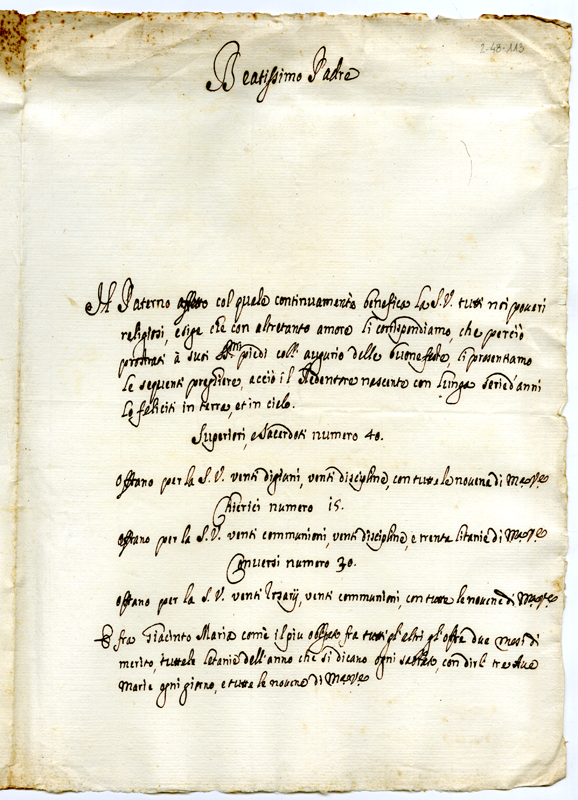 2-48-113
Beatissimo Padre
Il Paterno affetto col quale continuamente benefica la S.V. tutti noi poveri
religiosi, esige che con altretanto amore li corrispondiamo, che perciò
prostrati à suoi SSmi piedi coll' augurio delle buone feste, li presentiamo
le seguenti preghiere, acciò il Redentore nascente con lunga serie d'anni
lo feliciti in terra, et in cielo.
Superiori, e Sacerdoti numero 40.
Offrano per la S.V. venti digiuni, venti discipline, con tutte le novene di Ma. Ve.
Chierici numero 15.
Offrano per la S.V. venti communioni, venti discipline, e trenta litanie di Ma. Ve.
Conversi numero 30.
Offrano per la S.V. venti rosarij, venti communioni, con tutte le novene di Ma. Ve.
E fra Giacinto Maria come il più obligato fra tutti gl'altri gl'offre due mesi di
merito, tutte le litanie dell'anno che si dicano ogni sabbato, con dirli tre Ave
Marie ogni giorno, e tutte le novene di Ma. Ve.